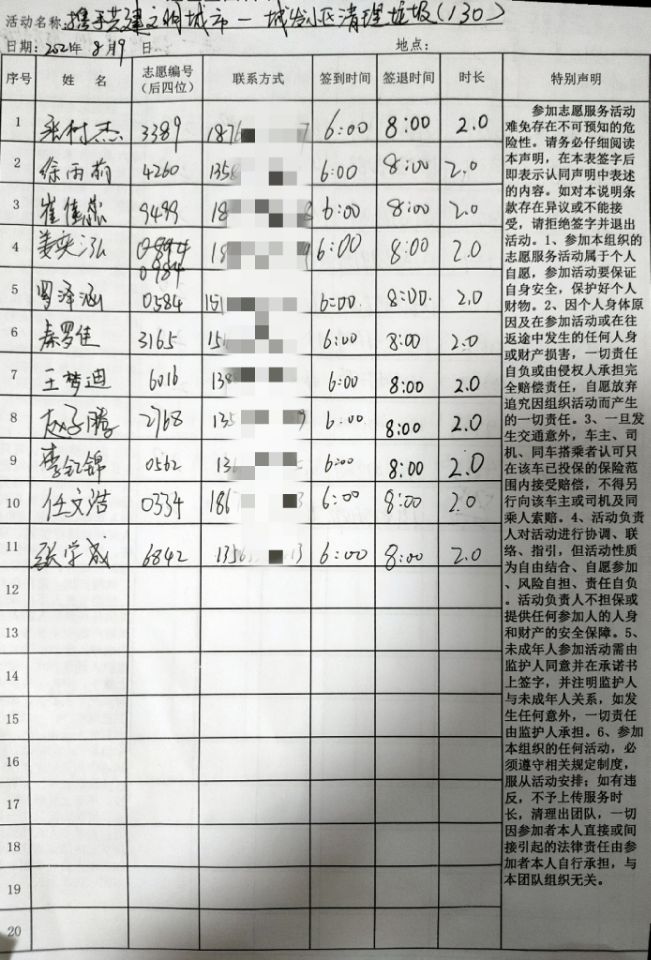 活动名称:携手共建文明城市一城发小区清理垃圾(130)
日期:2021年8月9日 地点:
序号 姓名 志愿编号(后四位) 联系方式 签到时间 签退时间 时长 特别声明
1 张树杰 3389 1876 7 6:00 8:00 2.0
2 徐雨萌 4260 1358 6:00 8:00 2.0
3 崔倩 9499 18 8 6:00 8:00 2.0
4 姜奕泓 0984 18 6:00 8:00 2.0
5 罗泽涵 0584 151 6:00. 8:00. 2.0
6 秦罗佳 3165 151 6:00 8:00 2.0
7 王梦迪 6016 138 6:00 8:00 2.0
8 赵子腾 2968 135 9 6:00 8:00 2.0
9 李红锦 0562 136 6:00 8:00 2.0
10 任文浩 0334 186 3 6:00 8:00 2.0
11 张学成 6842 1356 13 6:00 8:00 2.0
12
13
14
15
16
17
18
19
20
参加志愿服务活动
难免存在不可预知的危
险性。请务必仔细阅读
本声明,在本表签字后
即表示认同声明中表述
的内容。如对本说明条
款存在异议或不能接
受,请拒绝签字并退出
活动。1、参加本组织的
志愿服务活动属于个人
自愿,参加活动要保证
自身安全,保护好个人
财物。2、因个人身体原
因及在参加活动或在往
返途中发生的任何人身
或财产损害,一切责任
自负或由侵权人承担完
全赔偿责任,自愿放弃
追究因组织活动而产生
的一切责任。3、一旦发
生交通意外,车主、司
机、同车搭乘者认可只
在该车已投保的保险范
围内接受赔偿,不得另
行向该车主或司机及同
乘人索赔。4、活动负责
人对活动进行协调、联
络、指引,但活动性质
为自由结合、自愿参加
、风险自担、责任自负
。活动负责人不担保或
提供任何参加人的人身
和财产的安全保障。5、
未成年人参加活动需由
监护人同意并在承诺书
上签字,并注明监护人
与未成年人关系,如发
生任何意外,一切责任
由监护人承担。6、参加
本组织的任何活动,必
须遵守相关规定制度,
服从活动安排;如有违
反,不予上传服务时
长,清理出团队,一切
因参加者本人直接或间
接引起的法律责任由参
加者本人自行承担,与
本团队组织无关。